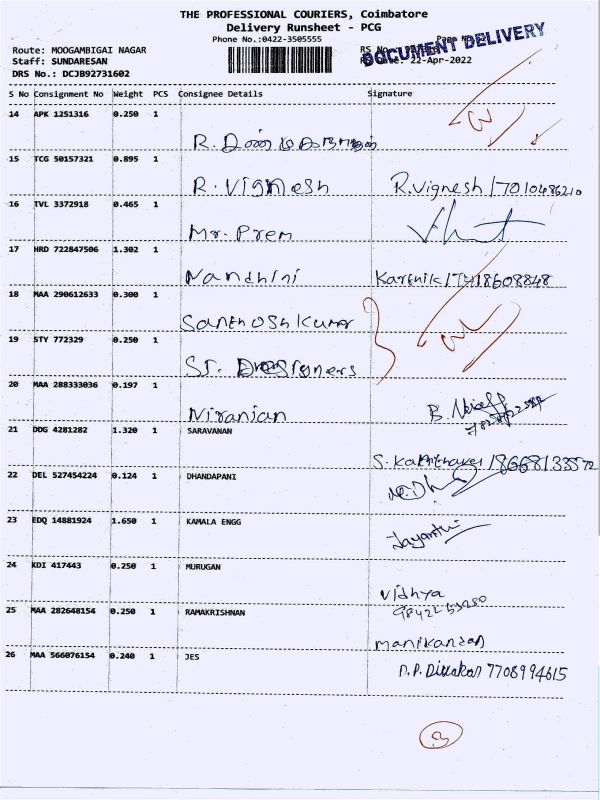 THE PROFESSIONAL COURIERS, Coimbatore
Delivery Runsheet - PCG
Phone No.:0422-3505555
DOCUMENT DELIVERY
Route: MOOGAMBIGAI NAGAR
Staff: SUNDARESAN
22-Apr-2022
DRS No.: DCJB92731602
S No Consignment No Weight PCS Consignee Details Signature
14 APK 1251316 0.250 1
R.
15 TCG 50157321 0.895 1
R. Vignesh R.Vignesh / 7010486210
16 TVL 3372918 0.465 1
Mr. Prem
17 HRD 722847506 1.302 1
Nandhini Karthik /
18 MAA 290612633 0.300 1
Santhosh Kumar
19 STY 772329 0.250 1
ST. Designers
20 MAA 288333036 0.197 1
Niranjan B.
21 DDG 4281282 1.320 1 SARAVANAN
S.
22 DEL 527454224 0.124 1 DHANDAPANI
23 EDQ 14881924 1.650 1 KAMALA ENGG
Jayanthi
24 KDI 417443 0.250 1 MURUGAN
Vidhya
25 MAA 282648154 0.250 1 RAMAKRISHNAN
Manikandan
26 MAA 566076154 0.240 1 JES
D.P. Divakar 7708994615